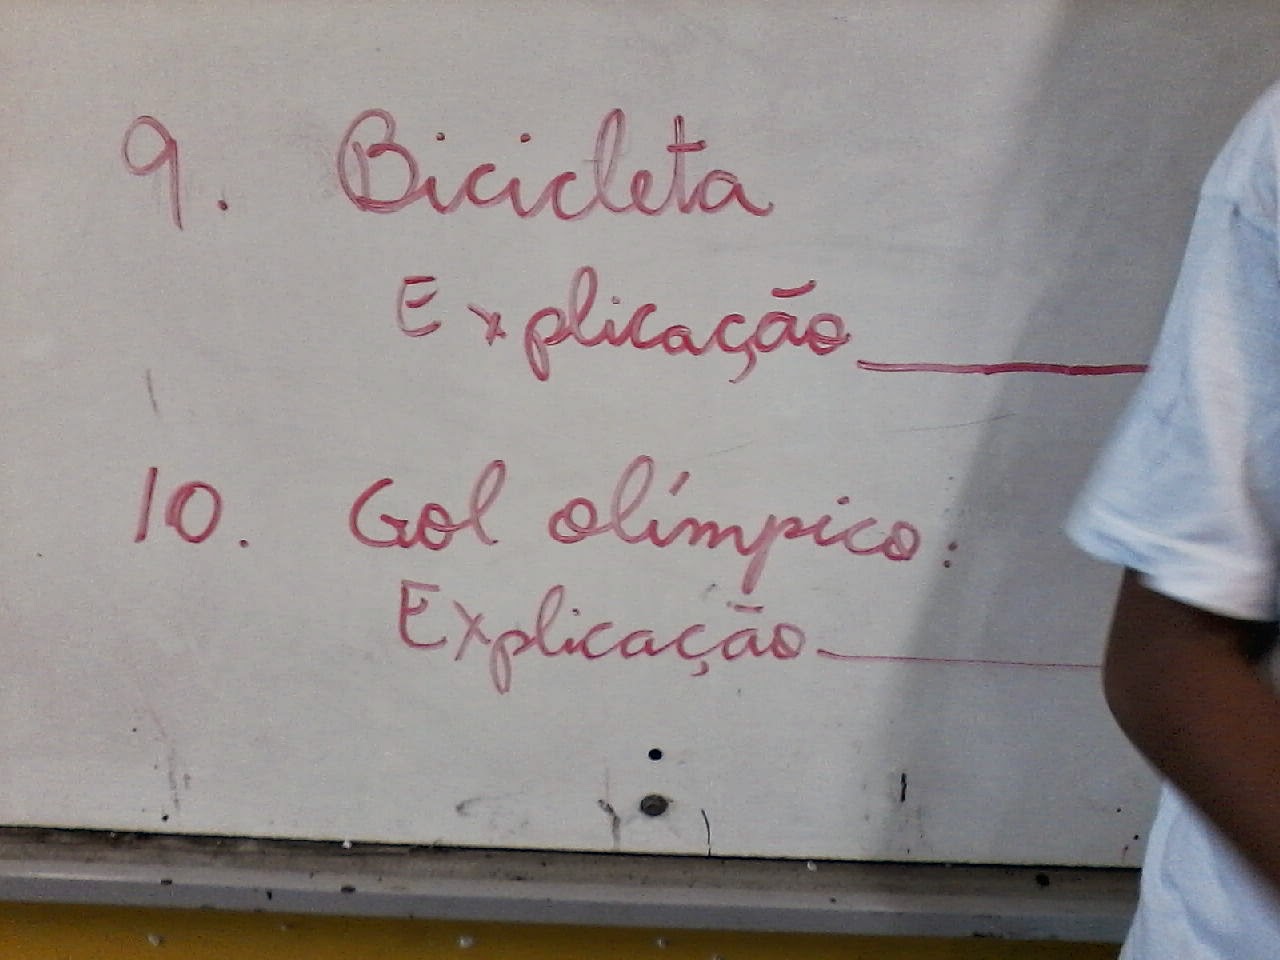 9. Bicicleta
Explicação ________
10. Gol olímpico:
Explicação ________